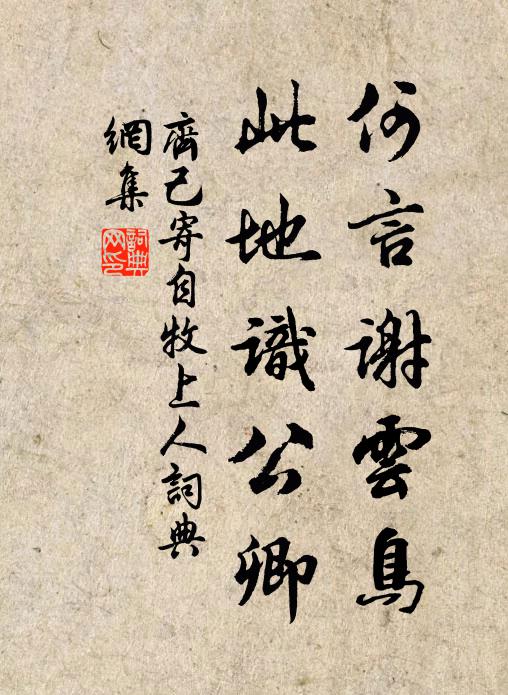 何言謝雲鳥
此地識公卿
齊己寄自牧上人詞典
網集
詞典網印